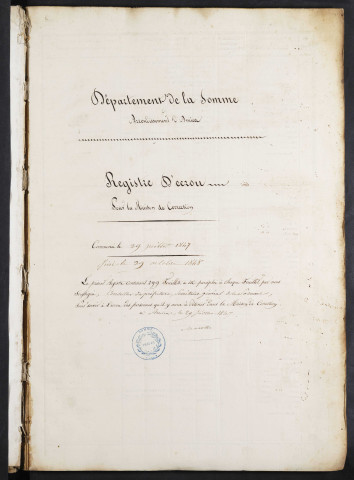 Département de la Somme
Arrondissement d'Amiens
Registre D'écrou
Pour la Maison de Correction
Commencé le 29 juillet 1847
fini le 29 octobre 1848
Le présent Registre contenant 199 Feuillets a été paraphé à chaque Feuillet par nous
Conseiller de préfecture, Secrétaire général
pour servir à l'écrou des personnes qui y seront détenues dans la Maison de Correction
à Amiens, le 29 juillet 1847